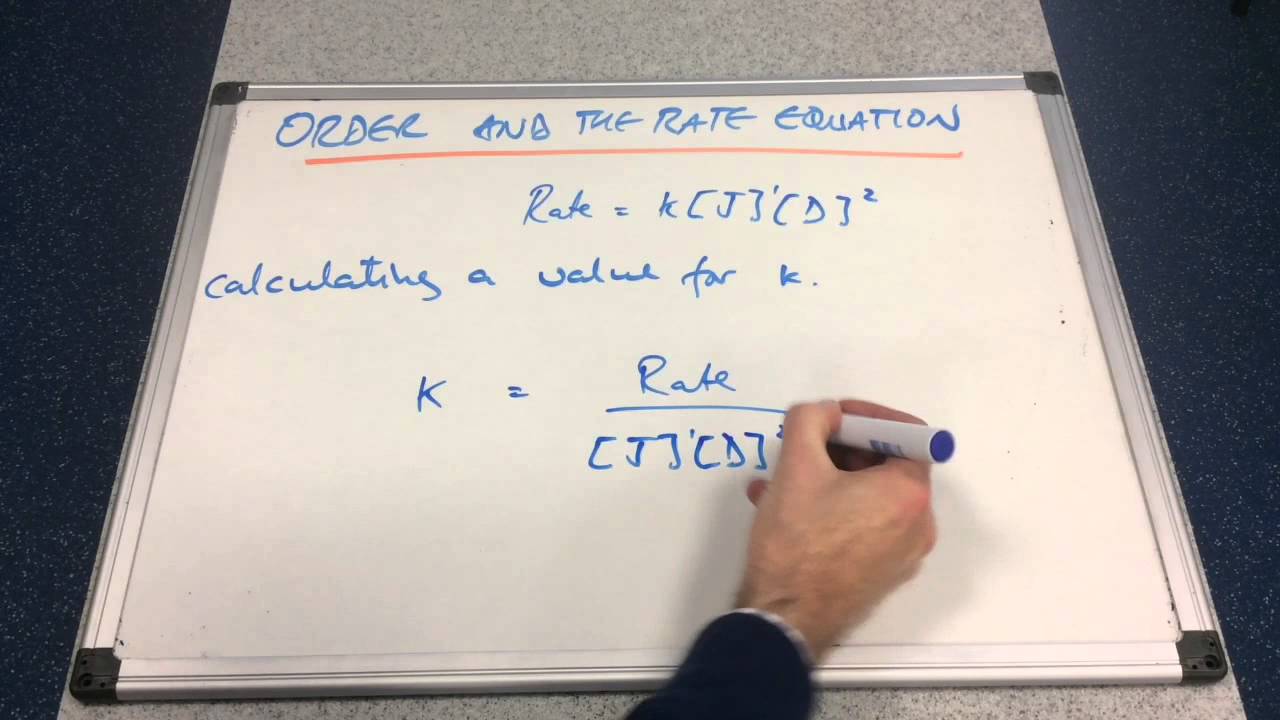 ORDER AND THE RATE EQUATION
Rate = k[J]¹[D]²
calculating a value for k.
K = Rate
[J]¹[D]²